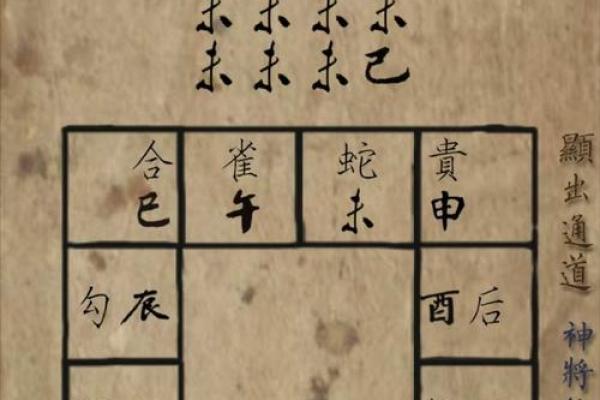 未未未未
未未未己
合雀蛇貴
巳午未申
勾辰酉后
顯出通道
神將